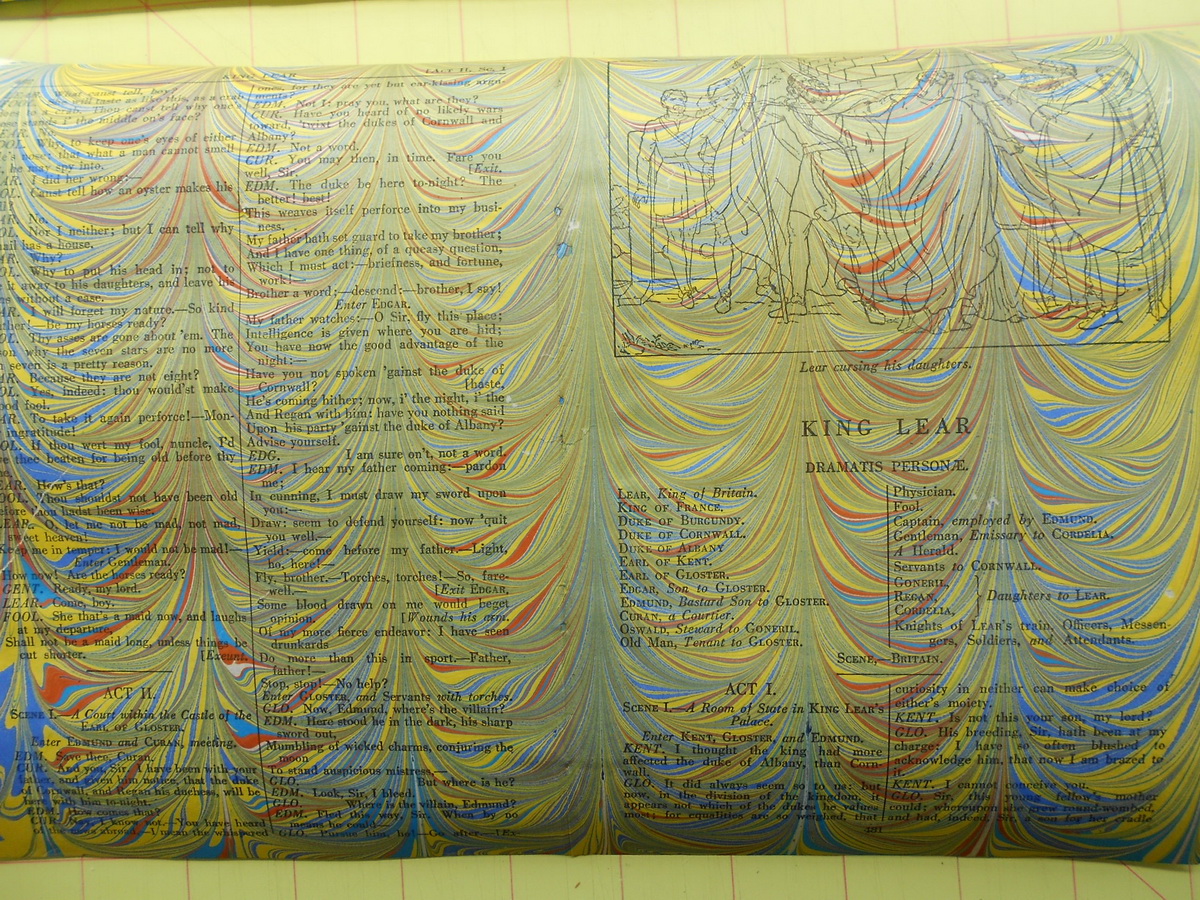 KING LEAR
[ACT II, SC. I
What canst tell, boy?
will taste as like this, as a crab
Thou canst tell why one's
if the middle on's face?
No.
Why, to keep one's eyes of either
nose; that what a man cannot smell
he may spy into.
I did her wrong:—
Canst tell how an oyster makes his
No.
Nor I neither; but I can tell why
snail has a house.
Why?
Why to put his head in; not to
it away to his daughters, and leave his
without a case.
I will forget my nature.—So kind
Be my horses ready?
Thy asses are gone about 'em. The
why the seven stars are no more
seven is a pretty reason.
Because they are not eight?
Yes, indeed: thou would'st make
good fool.
To take it again perforce!—Mon-
ingratitude!
If thou wert my fool, nuncle, I'd
thee beaten for being old before thy
How's that?
Thou shouldst not have been old
before thou hadst been wise.
LEAR. O, let me not be mad, not mad,
sweet heaven!
Keep me in temper; I would not be mad!—
Enter Gentleman.
How now! Are the horses ready?
GENT. Ready, my lord.
LEAR. Come, boy.
FOOL. She that's a maid now, and laughs
at my departure,
Shall not be a maid long, unless things be
cut shorter. [Exeunt.
ACT II.
SCENE I.—A Court within the Castle of the
EARL OF GLOSTER.
Enter EDMUND and CURAN, meeting.
EDM. Save thee, Curan.
CUR. And you, Sir. I have been with your
father, and given him notice, that the duke
of Cornwall, and Regan his duchess, will be
here with him to-night.
EDM. How comes that?
CUR. Nay, I know not.—You have heard
of the news abroad; I mean the whispered
ones, for they are yet but ear-kissing argu-
EDM. Not I; pray you, what are they?
CUR. Have you heard of no likely wars
toward, 'twixt the dukes of Cornwall and
Albany?
EDM. Not a word.
CUR. You may then, in time. Fare you
well, Sir. [Exit.
EDM. The duke be here to-night? The
better! best!
This weaves itself perforce into my busi-
ness.
My father hath set guard to take my brother;
And I have one thing, of a queasy question,
Which I must act:—briefness, and fortune,
work!—
Brother a word;—descend:—brother, I say!
Enter EDGAR.
My father watches:—O Sir, fly this place;
Intelligence is given where you are hid;
You have now the good advantage of the
night:—
Have you not spoken 'gainst the duke of
Cornwall? [haste,
He's coming hither; now, i' the night, i' the
And Regan with him: have you nothing said
Upon his party 'gainst the duke of Albany?
Advise yourself.
EDG. I am sure on't, not a word.
EDM. I hear my father coming:—pardon
me;
In cunning, I must draw my sword upon
you:—
Draw: seem to defend yourself: now 'quit
you well.—
Yield:—come before my father.—Light,
ho, here!—
Fly, brother.—Torches, torches!—So, fare-
well.— [Exit EDGAR.
Some blood drawn on me would beget
opinion. [Wounds his arm.
Of my more fierce endeavor: I have seen
drunkards
Do more than this in sport.—Father,
father!
Stop, stop!—No help?
Enter GLOSTER, and Servants with torches.
GLO. Now, Edmund, where's the villain?
EDM. Here stood he in the dark, his sharp
sword out,
Mumbling of wicked charms, conjuring the
moon
To stand auspicious mistress,—
GLO. But where is he?
EDM. Look, Sir, I bleed.
GLO. Where is the villain, Edmund?
EDM. Fled this way, Sir. When by no
means he could—
GLO. Pursue him, ho!—Go after.—[Ex
Lear cursing his daughters.
KING LEAR
DRAMATIS PERSONÆ.
LEAR, King of Britain.
KING OF FRANCE.
DUKE OF BURGUNDY.
DUKE OF CORNWALL.
DUKE OF ALBANY
EARL OF KENT.
EARL OF GLOSTER.
EDGAR, Son to GLOSTER.
EDMUND, Bastard Son to GLOSTER.
CURAN, a Courtier.
OSWALD, Steward to GONERIL.
Old Man, Tenant to GLOSTER.
Physician.
Fool.
Captain, employed by EDMUND.
Gentleman, Emissary to CORDELIA.
A Herald.
Servants to CORNWALL.
GONERIL,
REGAN,
CORDELIA,
Daughters to LEAR.
Knights of LEAR's train, Officers, Messen-
gers, Soldiers, and Attendants.
SCENE,—BRITAIN.
ACT I.
SCENE I.—A Room of State in KING LEAR'S
Palace.
Enter KENT, GLOSTER, and EDMUND.
KENT. I thought the king had more
affected the duke of Albany, than Corn-
wall.
GLO. It did always seem so to us: but
now, in the division of the kingdom, it
appears not which of the dukes he values
most; for equalities are so weighed, that
curiosity in neither can make choice of
either's moiety.
KENT. Is not this your son, my lord?
GLO. His breeding, Sir, hath been at my
charge: I have so often blushed to
acknowledge him, that now I am brazed to
it.
KENT. I cannot conceive you.
GLO. Sir, this young fellow's mother
could: whereupon she grew round-wombed,
and had, indeed, Sir, a son for her cradle